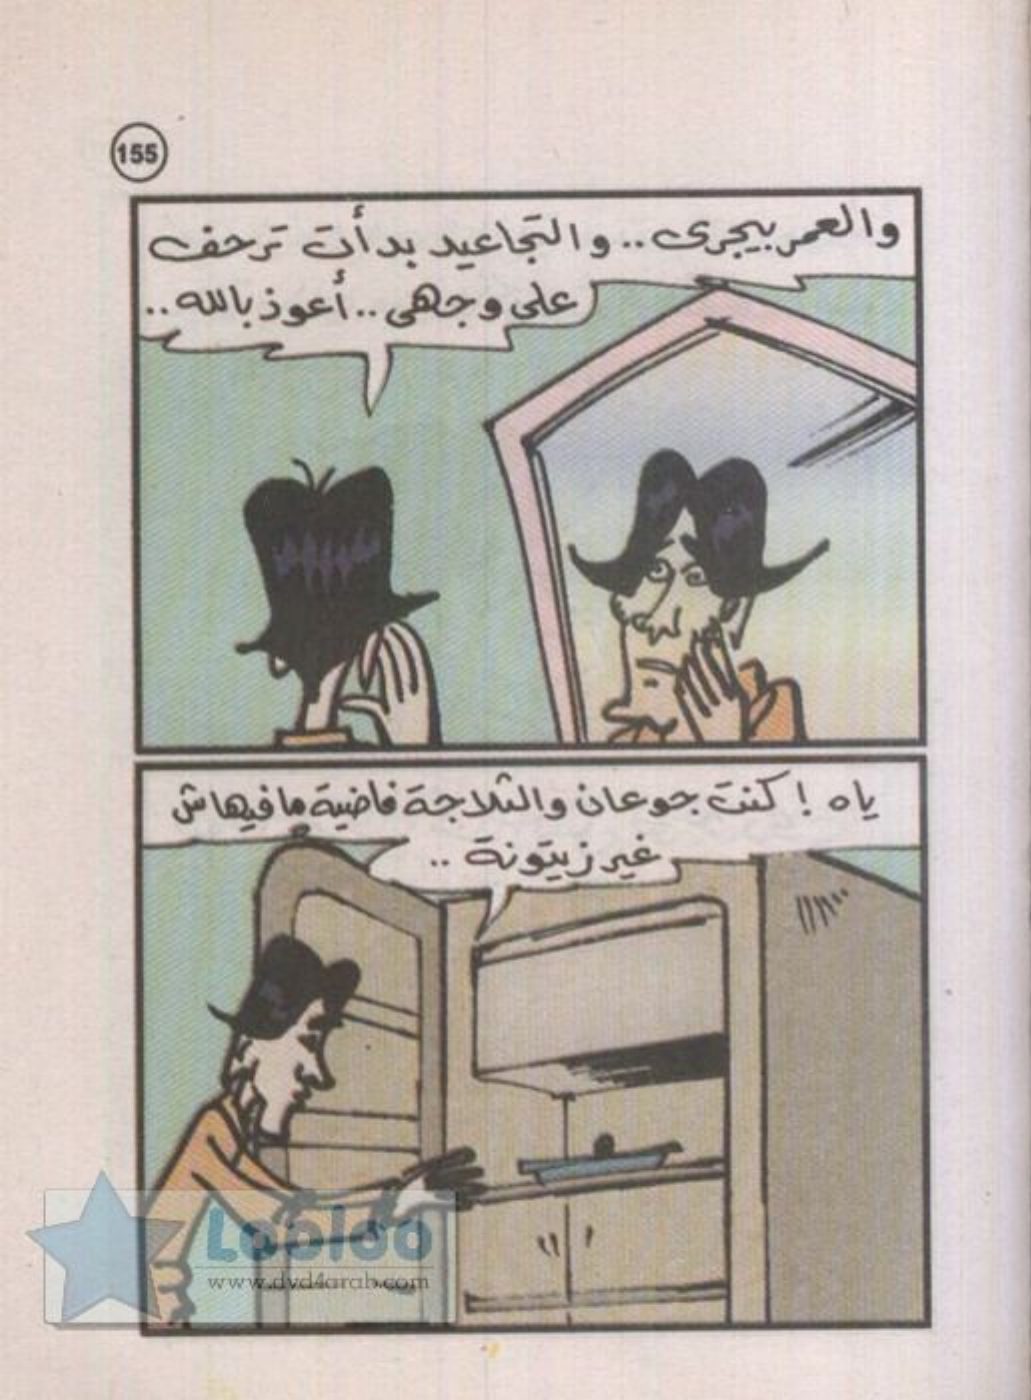 155
والعمر بيجرى.. والتجاعيد بدأت ترحف
على وجهى.. أعوذ بالله..
ياه ! كنت جوعان والثلاجة فاضية مافيهاش
غير زيتونة ..
Looloo
www.dvd4arab.com